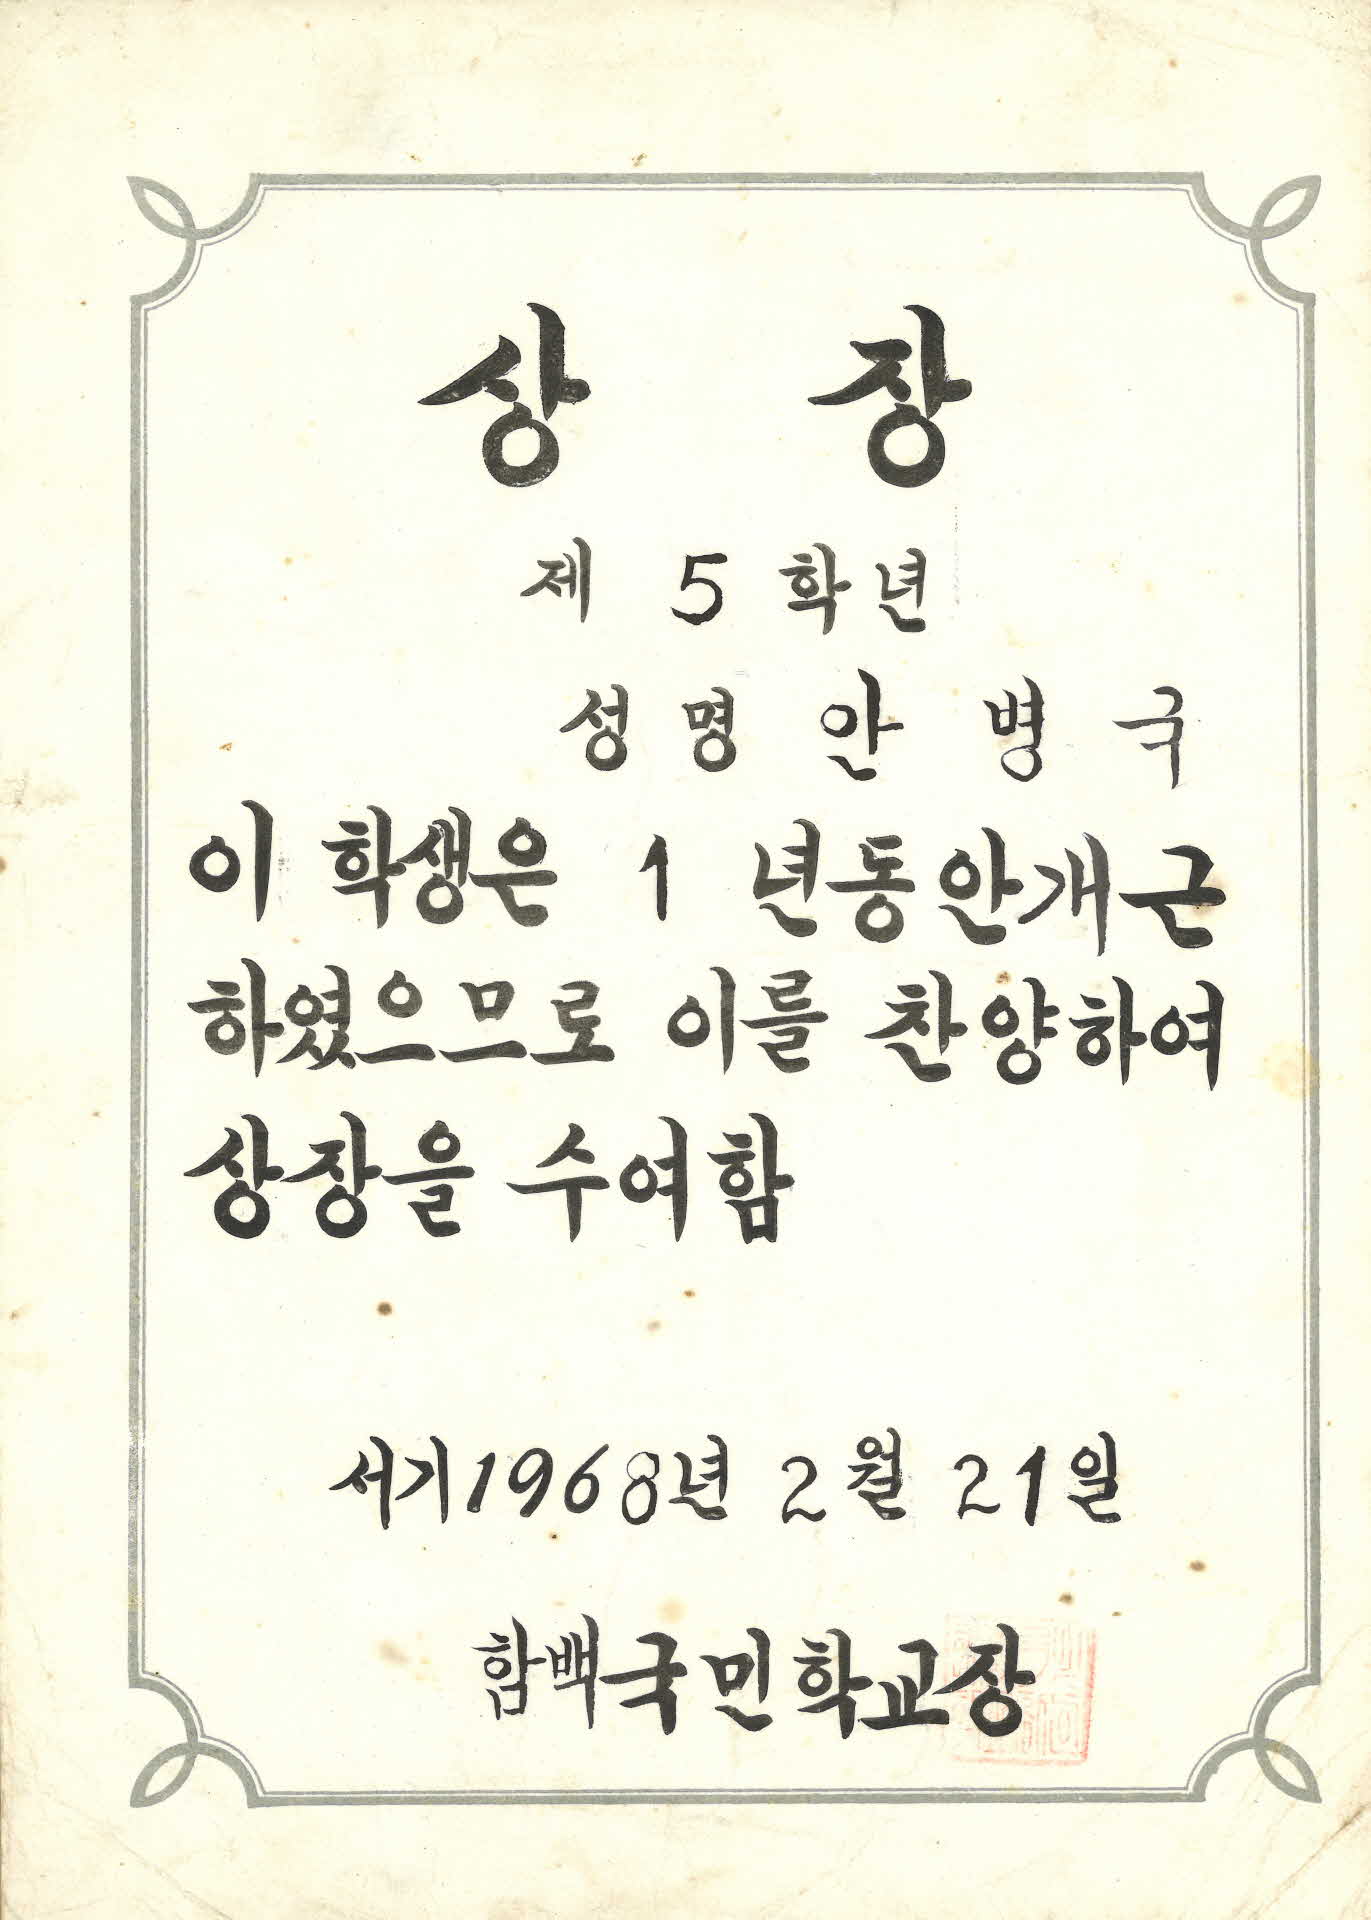 상 장
제 5 학년
성명 안 병 국
이 학생은 1 년동안개근
하였으므로 이를 찬양하여
상장을 수여함
서기1968년 2월 21일
함백국민학교장